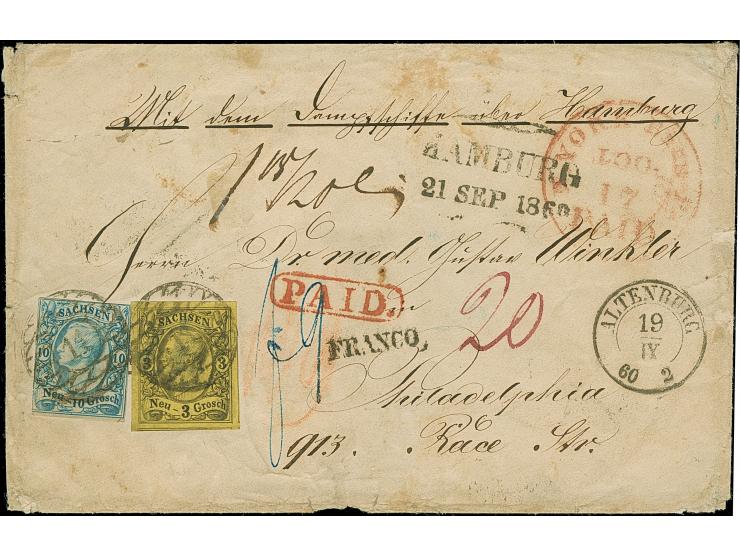 Mit dem Dampfschiffe über Hamburg
HAMBURG
21 SEP 1860
OCT
17
PAID
Herrn Dr. med. Gustav Winkler
in
PAID.
FRANCO,
20
9
ALTENBURG
19
IX
60 2
SACHSEN
10 10
Neu - 10 Grosch
SACHSEN
3 3
Neu - 3 Grosch
Philadelphia
913. Race Str.